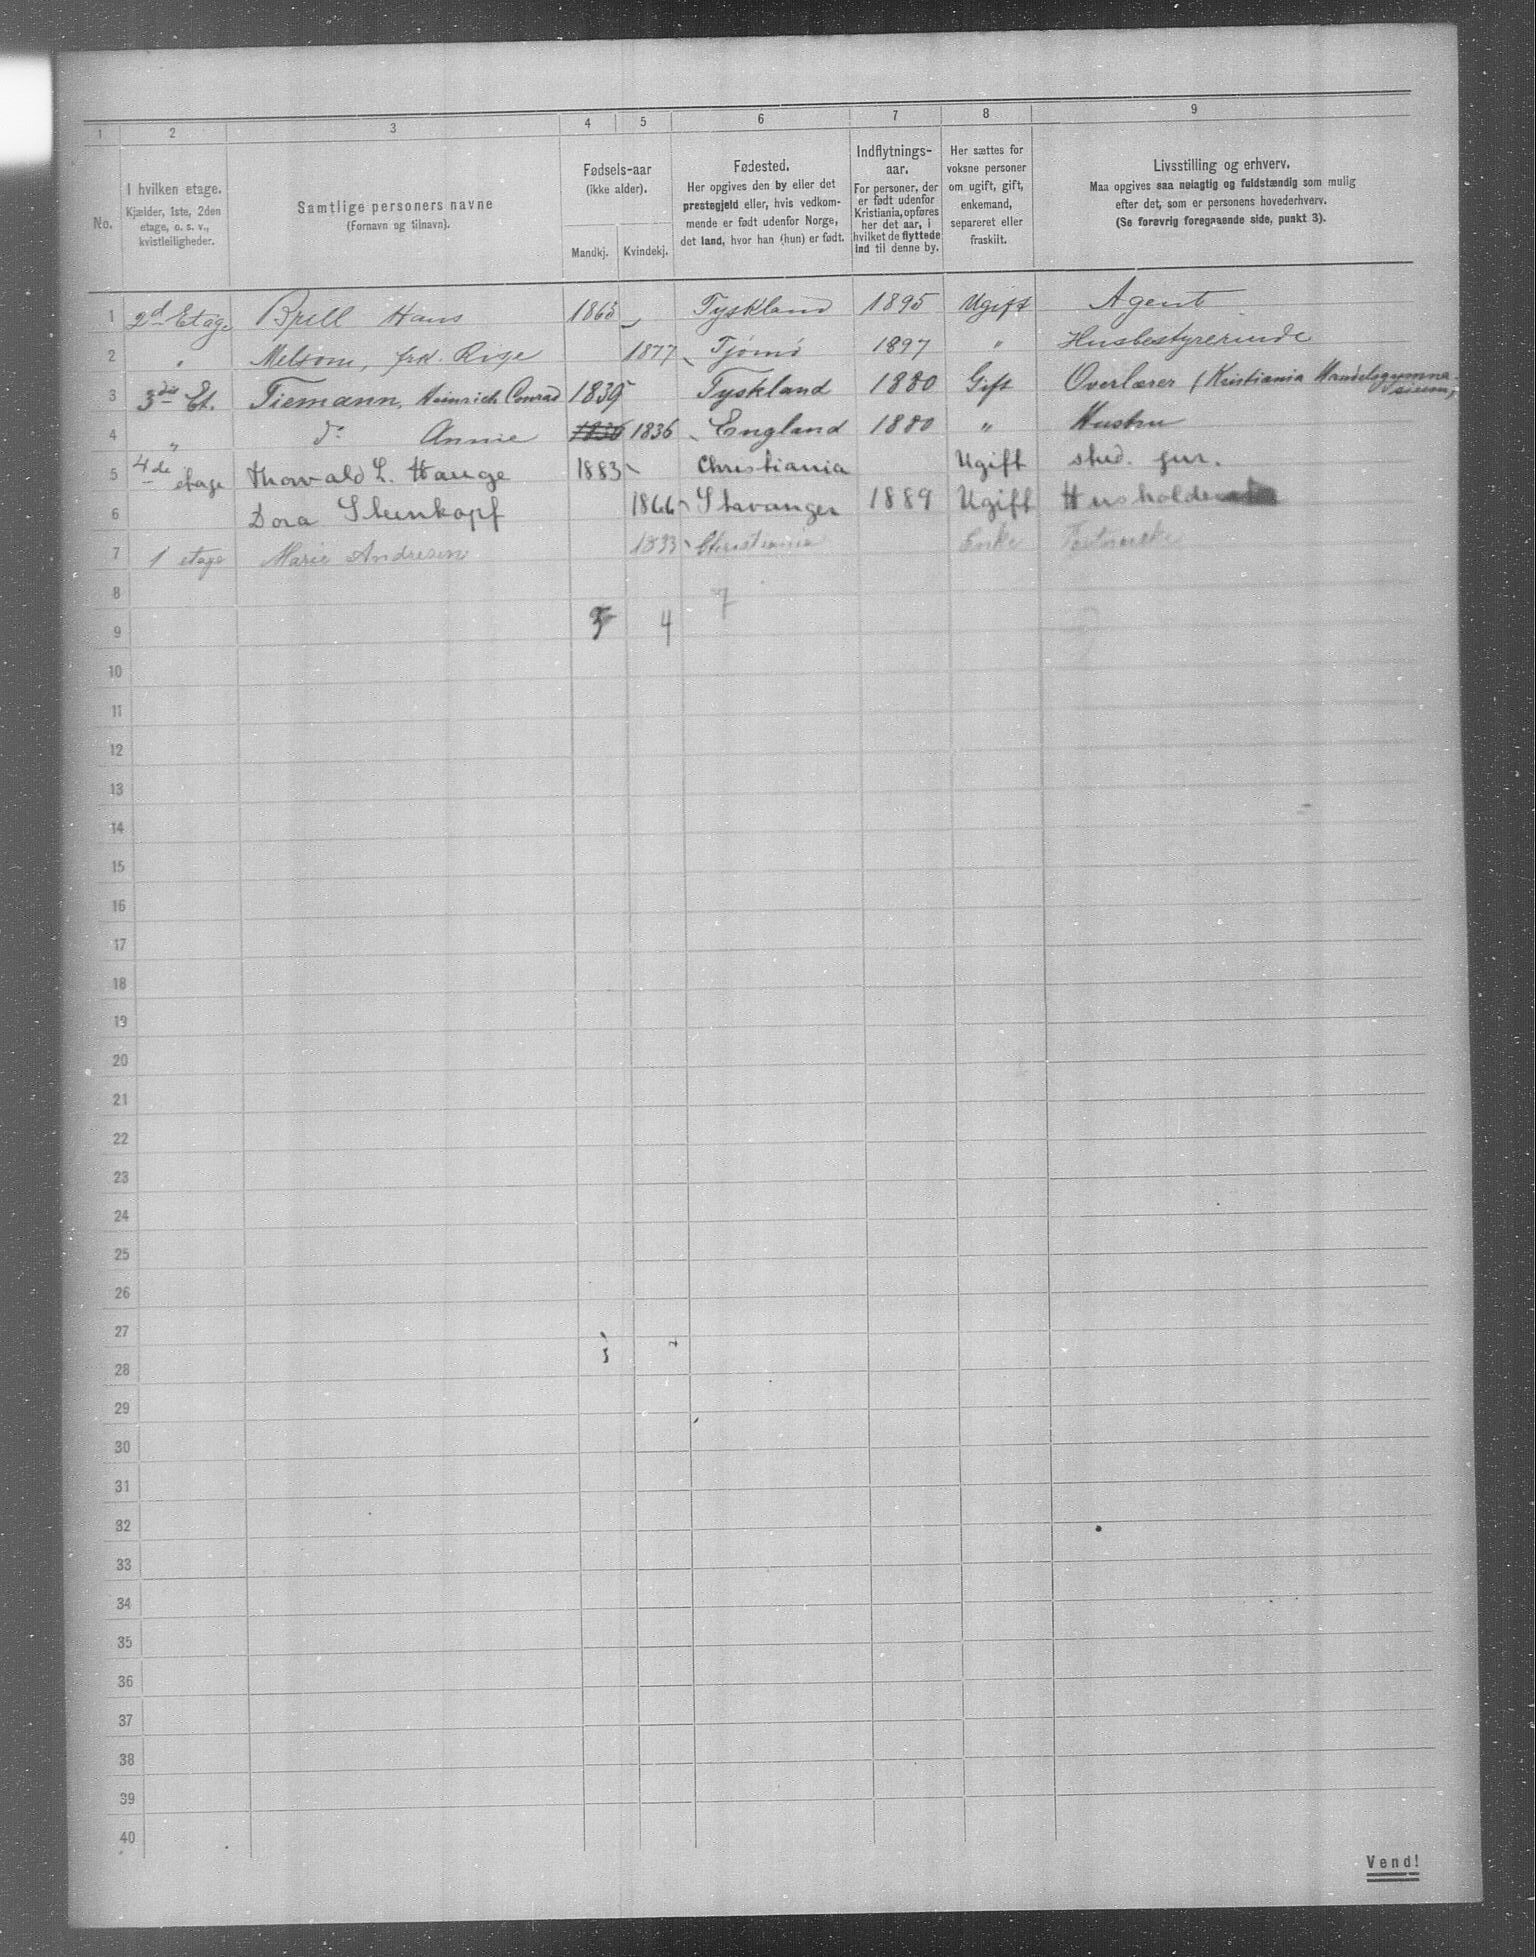 1 2 3 4 5 6 7 8 9
No.
I hvilken etage.
Kjælder, 1ste, 2den
etage, o. s. v.,
kvistleiligheder.
Samtlige personers navne
(Fornavn og tilnavn).
Fødsels-aar
(ikke alder).
Mandkj. Kvindekj.
Fødested.
Her opgives den by eller det
prestegjeld eller, hvis vedkom-
mende er født udenfor Norge,
det land, hvor han (hun) er født.
Indflytnings-
aar.
For personer, der
er født udenfor
Kristiania, opføres
her det aar, i
hvilket de flyttede
ind til denne by.
Her sættes for
voksne personer
om ugift, gift,
enkemand,
separeret eller
fraskilt.
Livsstilling og erhverv.
Maa opgives saa nøiagtig og fuldstændig som mulig
efter det, som er personens hovederhverv.
(Se forøvrig foregaaende side, punkt 3).
1 2d Etage Brell Hans 1865 Tyskland 1895 Ugift Agent
2 " Melsom, frk. Rige 1877 Tjømø 1897 " Husbestyrerinde
3 3die Et. Tiemann, Heinrich Conrad 1839 Tyskland 1880 Gift Overlærer (Kristiania Handelsgymna-
sium)
4 " do Annie 1836 1836 England 1880 " Hustru
5 4de etage Thorvald L. Hauge 1883 Christiania Ugift stud. jur.
6 Dora Steinkopf 1866 Stavanger 1889 Ugift
7 1 etage Marie Andresen 1833 Christiania Enke
8 7
9 3 4
10
11
12
13
14
15
16
17
18
19
20
21
22
23
24
25
26
27
28
29
30
31
32
33
34
35
36
37
38
39
40
Vend!